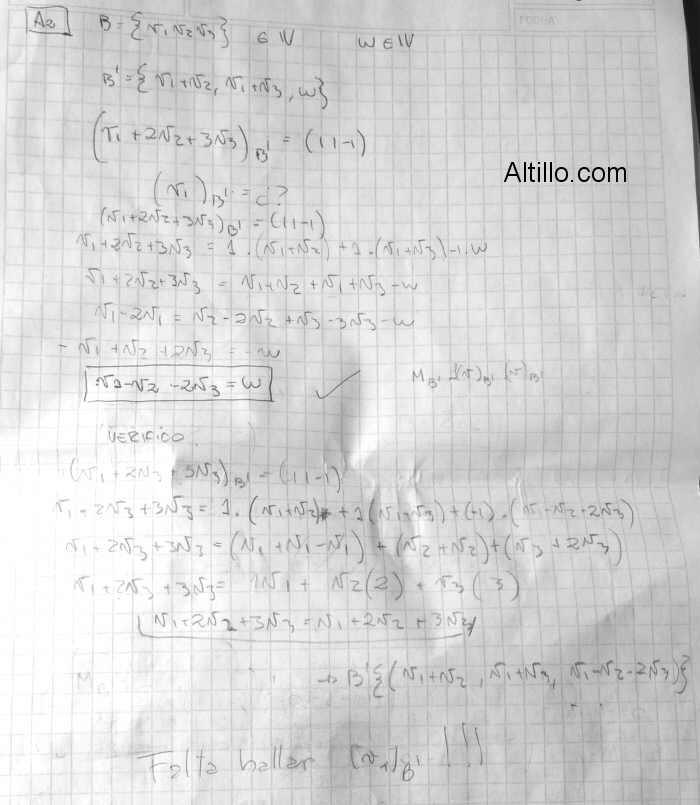 FECHA
A2 B = {v1 v2 v3} ∈ V w ∈ V
B' = {v1+v2, v1+v3, w}
(v1 + 2v2 + 3v3)B' = (1 1 -1)
Altillo.com
(v1)B' = ¿?
(v1+2v2+3v3)B' = (1 1 -1)
v1+2v2+3v3 = 1.(v1+v2) + 1.(v1+v3) -1.w
v1+2v2+3v3 = v1+v2+v1+v3-w
v1-2v1 = v2-2v2+v3-3v3-w
-v1+v2+2v3 = -w
v1-v2-2v3 = w ✓
MB' (v)B' (v)B'
VERIFICO:
(v1+2v3+3v3)B' = (1 1 -1)
v1+2v3+3v3 = 1.(v1+v2) + 1(v1+v3)+(-1).(v1-v2-2v3)
v1+2v3+3v3 = (v1+v1-v1) + (v2+v2)+(v3+2v3)
v1+2v3+3v3 = 1v1 + v2(2) + v3(3)
v1+2v2+3v3 = v1+2v2+3v3
→ B'{(v1+v2, v1+v3, v1-v2-2v3)}
Falta hallar (v1)B' !!!